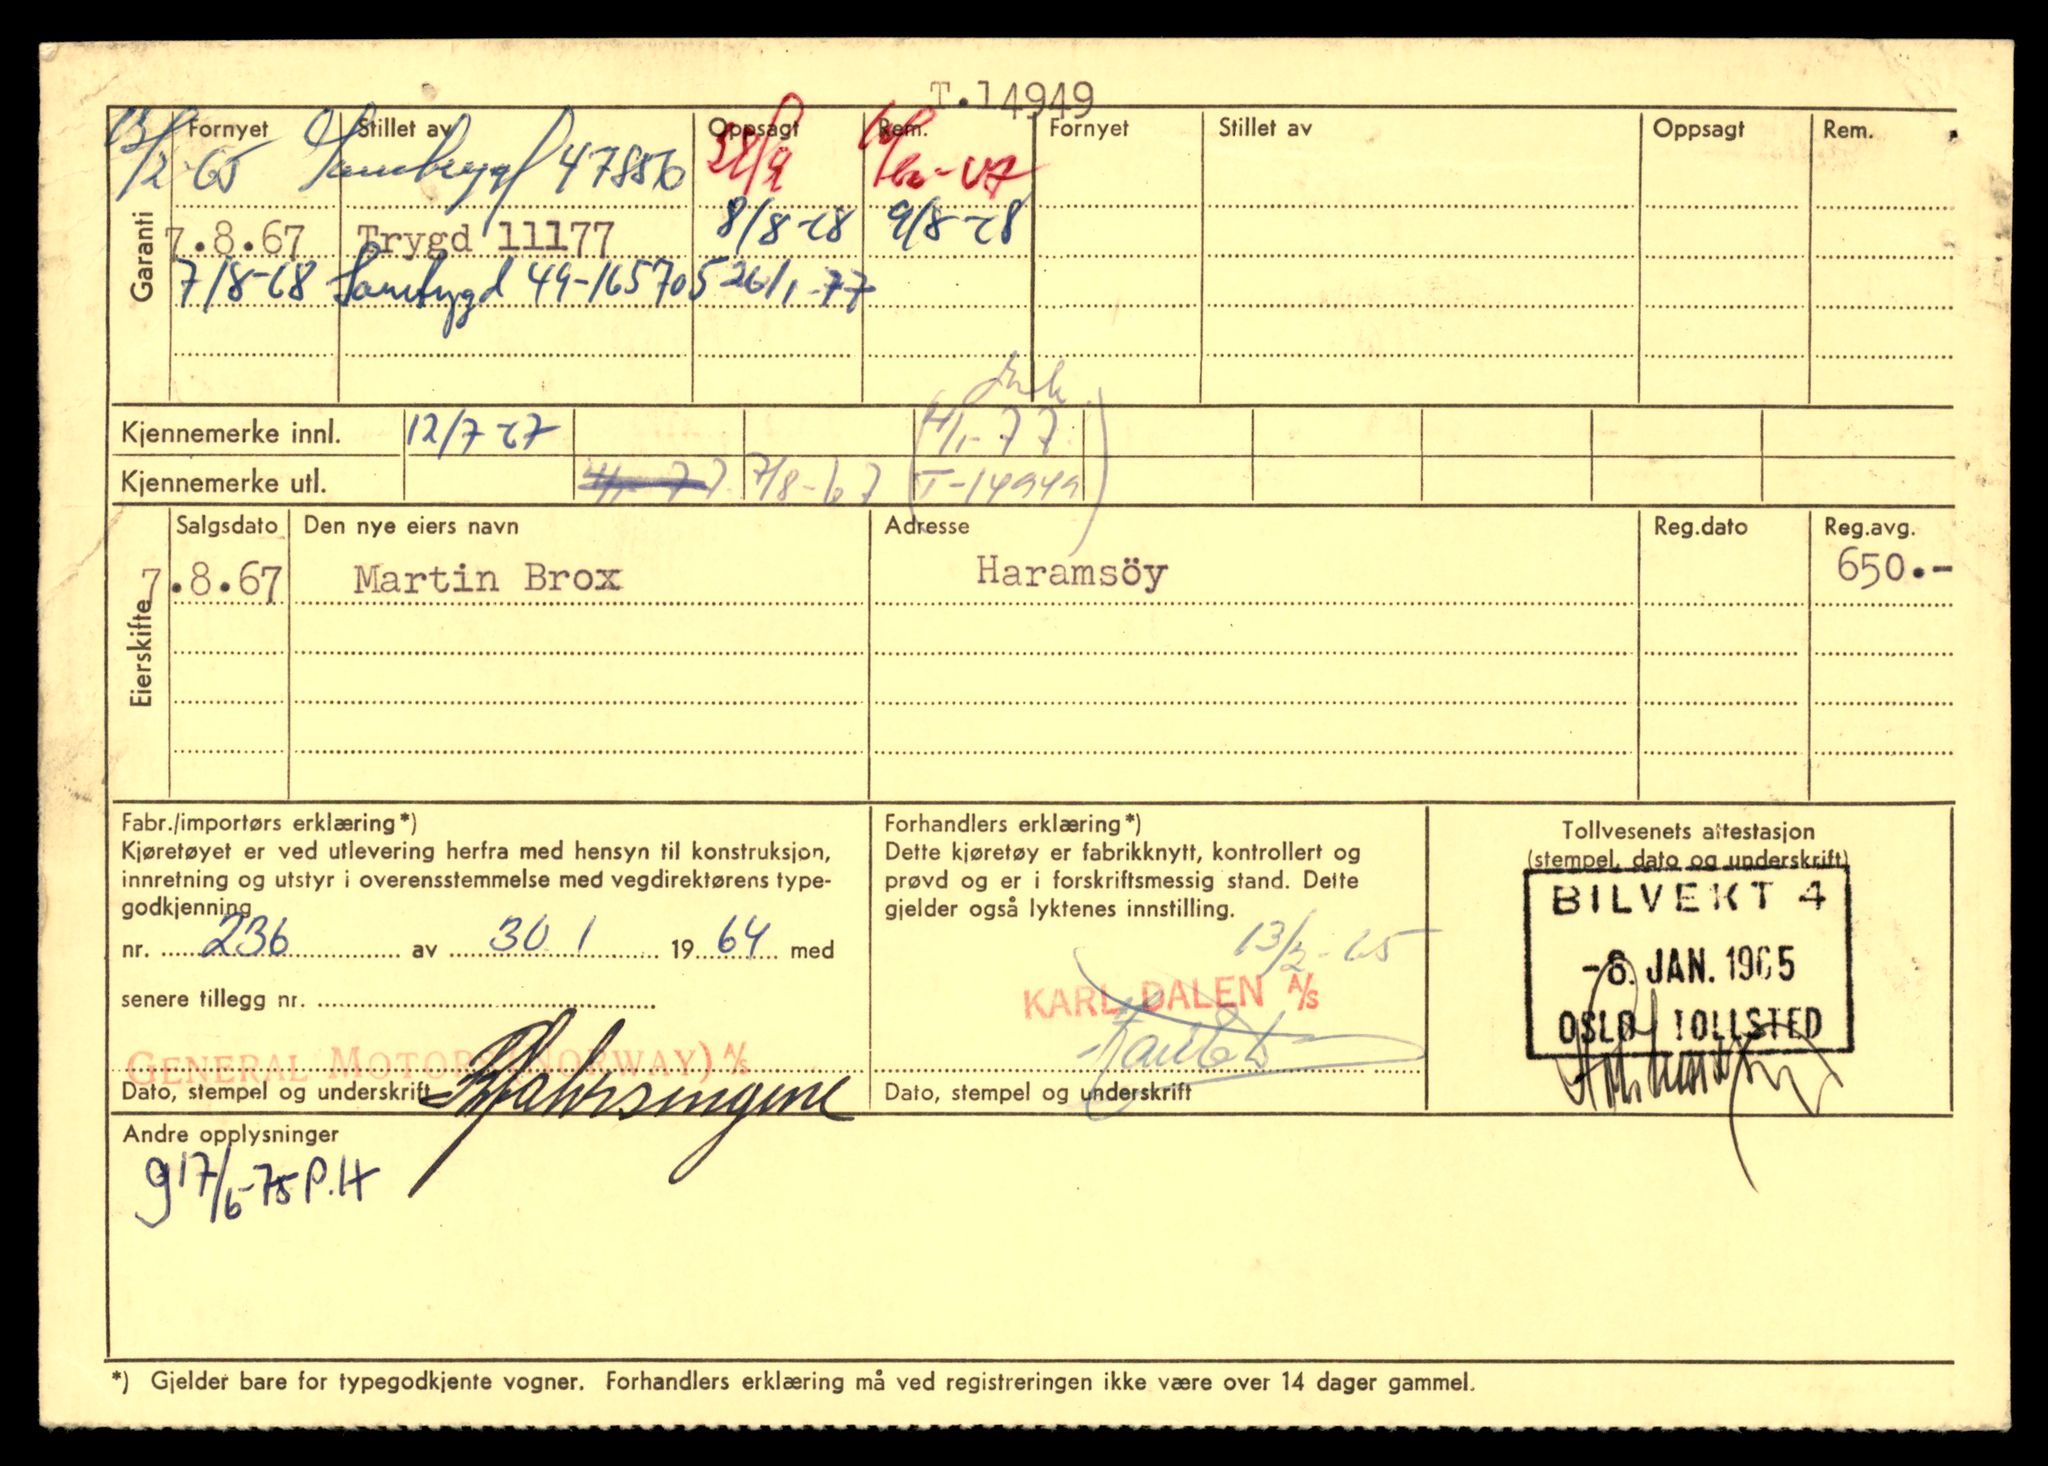 T.14949
Garanti
Fornyet Stillet av Oppsagt Rem. Fornyet Stillet av Oppsagt Rem.
13/2-65 Samtrygd 47856
7.8.67 Trygd 11177 8/8-68 9/8-68
7/8-68 Samtrygd 49-165705 26/1-77
Kjennemerke innl. 12/7-67 4/1-77
Kjennemerke utl. 7/8-67 T-14949
Eierskifte
Salgsdato Den nye eiers navn Adresse Reg.dato Reg.avg.
7.8.67 Martin Brox Haramsöy 650.-
Fabr./importørs erklæring*)
Kjøretøyet er ved utlevering herfra med hensyn til konstruksjon,
innretning og utstyr i overensstemmelse med vegdirektørens type-
godkjenning
nr. 236 av 30 1 1964 med
senere tillegg nr.
GENERAL MOTORS (NORWAY) A/S
Dato, stempel og underskrift
Forhandlers erklæring*)
Dette kjøretøy er fabrikknytt, kontrollert og
prøvd og er i forskriftsmessig stand. Dette
gjelder også lyktenes innstilling.
13/2-65
KARL DALEN A/S
Dato, stempel og underskrift
Tollvesenets attestasjon
(stempel, dato og underskrift)
BILVEKT 4
-8. JAN. 1965
OSLO TOLLSTED
Andre opplysninger
g 17/6-75 P.H
*) Gjelder bare for typegodkjente vogner. Forhandlers erklæring må ved registreringen ikke være over 14 dager gammel.